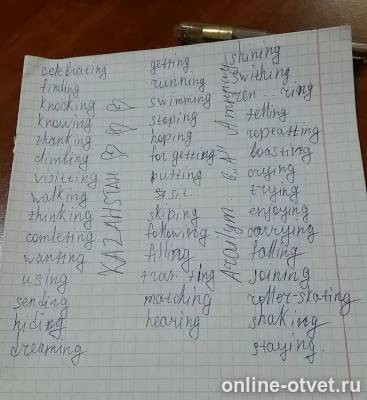 celebrating
finding
knocking
knowing
thanking
climbing
visitting
walking
thinking
comleting
wanting
using
sending
hiding
dreaming
KAZAHSTAN
getting
running
swimming
stoping
hoping
for getting
putting
skiping
following
filling
matching
hearing
Arailym
shining
swithing
telling
repeatting
boasting
crying
trying
enjoying
carrying
falling
joining
roller-skating
shaking
staying.
online-otvet.ru